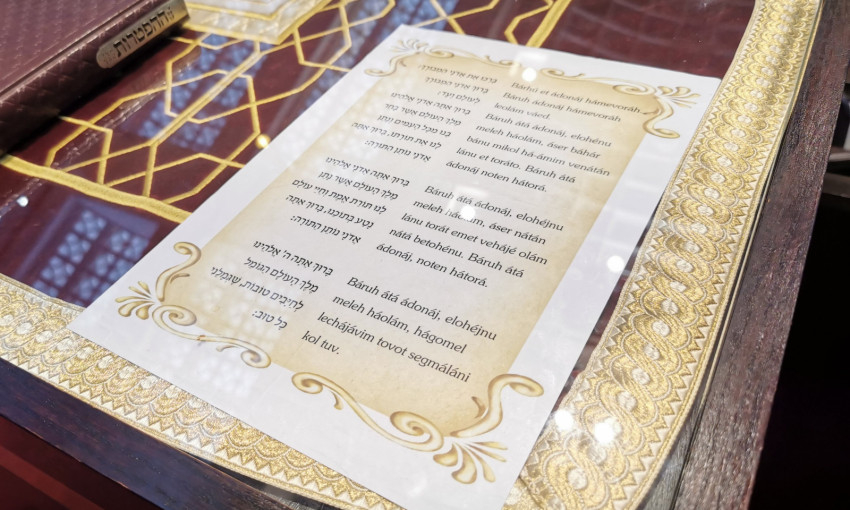 ההפטרות
בָּרְכוּ אֶת אֲדֹנָי הַמְבֹרָךְ:
בָּרוּךְ אֲדֹנָי הַמְבֹרָךְ
לְעוֹלָם וָעֶד:
בָּרוּךְ אַתָּה אֲדֹנָי אֱלֹהֵינוּ
מֶלֶךְ הָעוֹלָם אֲשֶׁר בָּחַר
בָּנוּ מִכָּל הָעַמִּים וְנָתַן
לָנוּ אֶת תּוֹרָתוֹ, בָּרוּךְ אַתָּה
אֲדֹנָי נוֹתֵן הַתּוֹרָה:
Bárhú et ádonáj hámevoráh
Báruh ádonáj hámevoráh
leolám váed.
Báruh átá ádonáj, elohénu
meleh háolám, áser báhár
bánu mikol há-ámim venátán
lánu et toráto. Báruh átá
ádonáj noten hátorá.
בָּרוּךְ אַתָּה אֲדֹנָי אֱלֹהֵינוּ
מֶלֶךְ הָעוֹלָם אֲשֶׁר נָתַן
לָנוּ תּוֹרַת אֱמֶת וְחַיֵּי עוֹלָם
נָטַע בְּתוֹכֵנוּ, בָּרוּךְ אַתָּה
אֲדֹנָי נוֹתֵן הַתּוֹרָה:
Báruh átá ádonáj, elohéjnu
meleh háolám, áser nátán
lánu torát emet veháje olám
nátá betohénu. Báruh átá
ádonáj, noten hátorá.
בָּרוּךְ אַתָּה ה' אֱלֹהֵינוּ
מֶלֶךְ הָעוֹלָם הַגּוֹמֵל
לְחַיָּבִים טוֹבוֹת, שֶׁגְּמָלַנִי
כָּל טוּב:
Báruh átá ádonáj, elohéjnu
meleh háolám, hágomel
lechájávim tovot segmáláni
kol tuv.